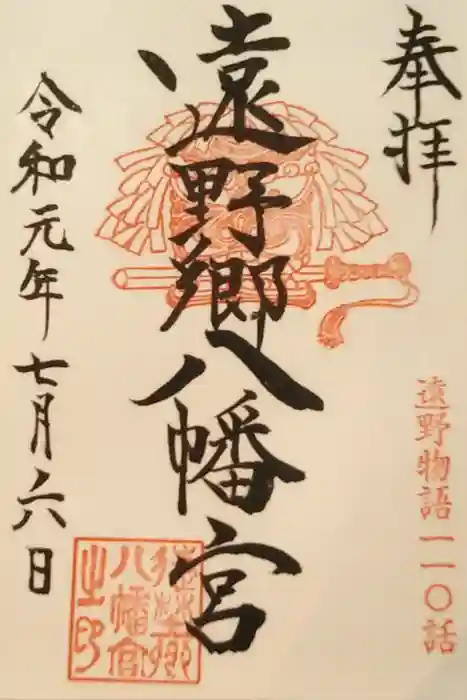 奉拝
遠野物語一一〇話
遠野郷八幡宮
令和元年七月六日
遠野郷
八幡宮
之印